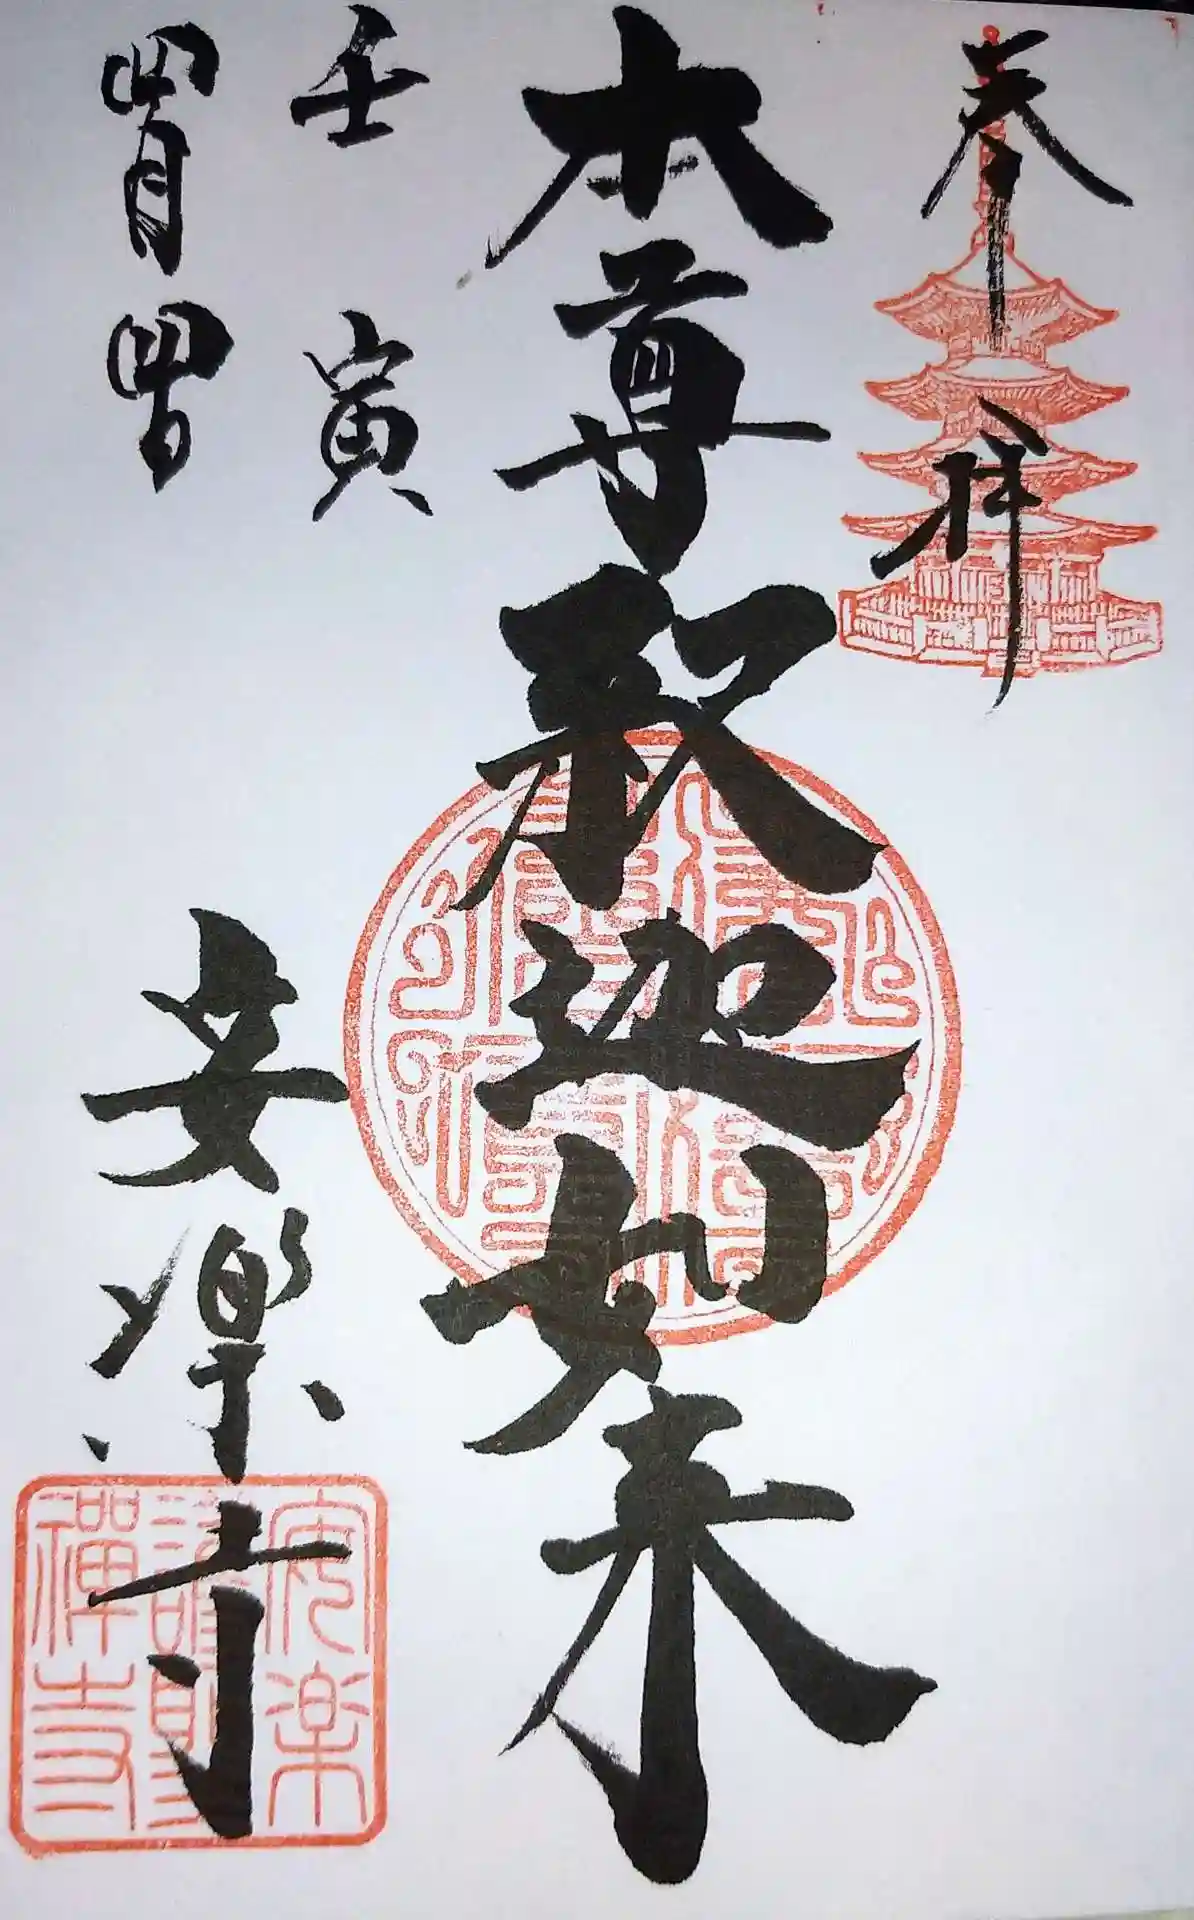 奉拝
本尊釈迦如来
壬寅
四月四日
安楽寺
安楽
護聖
禅寺